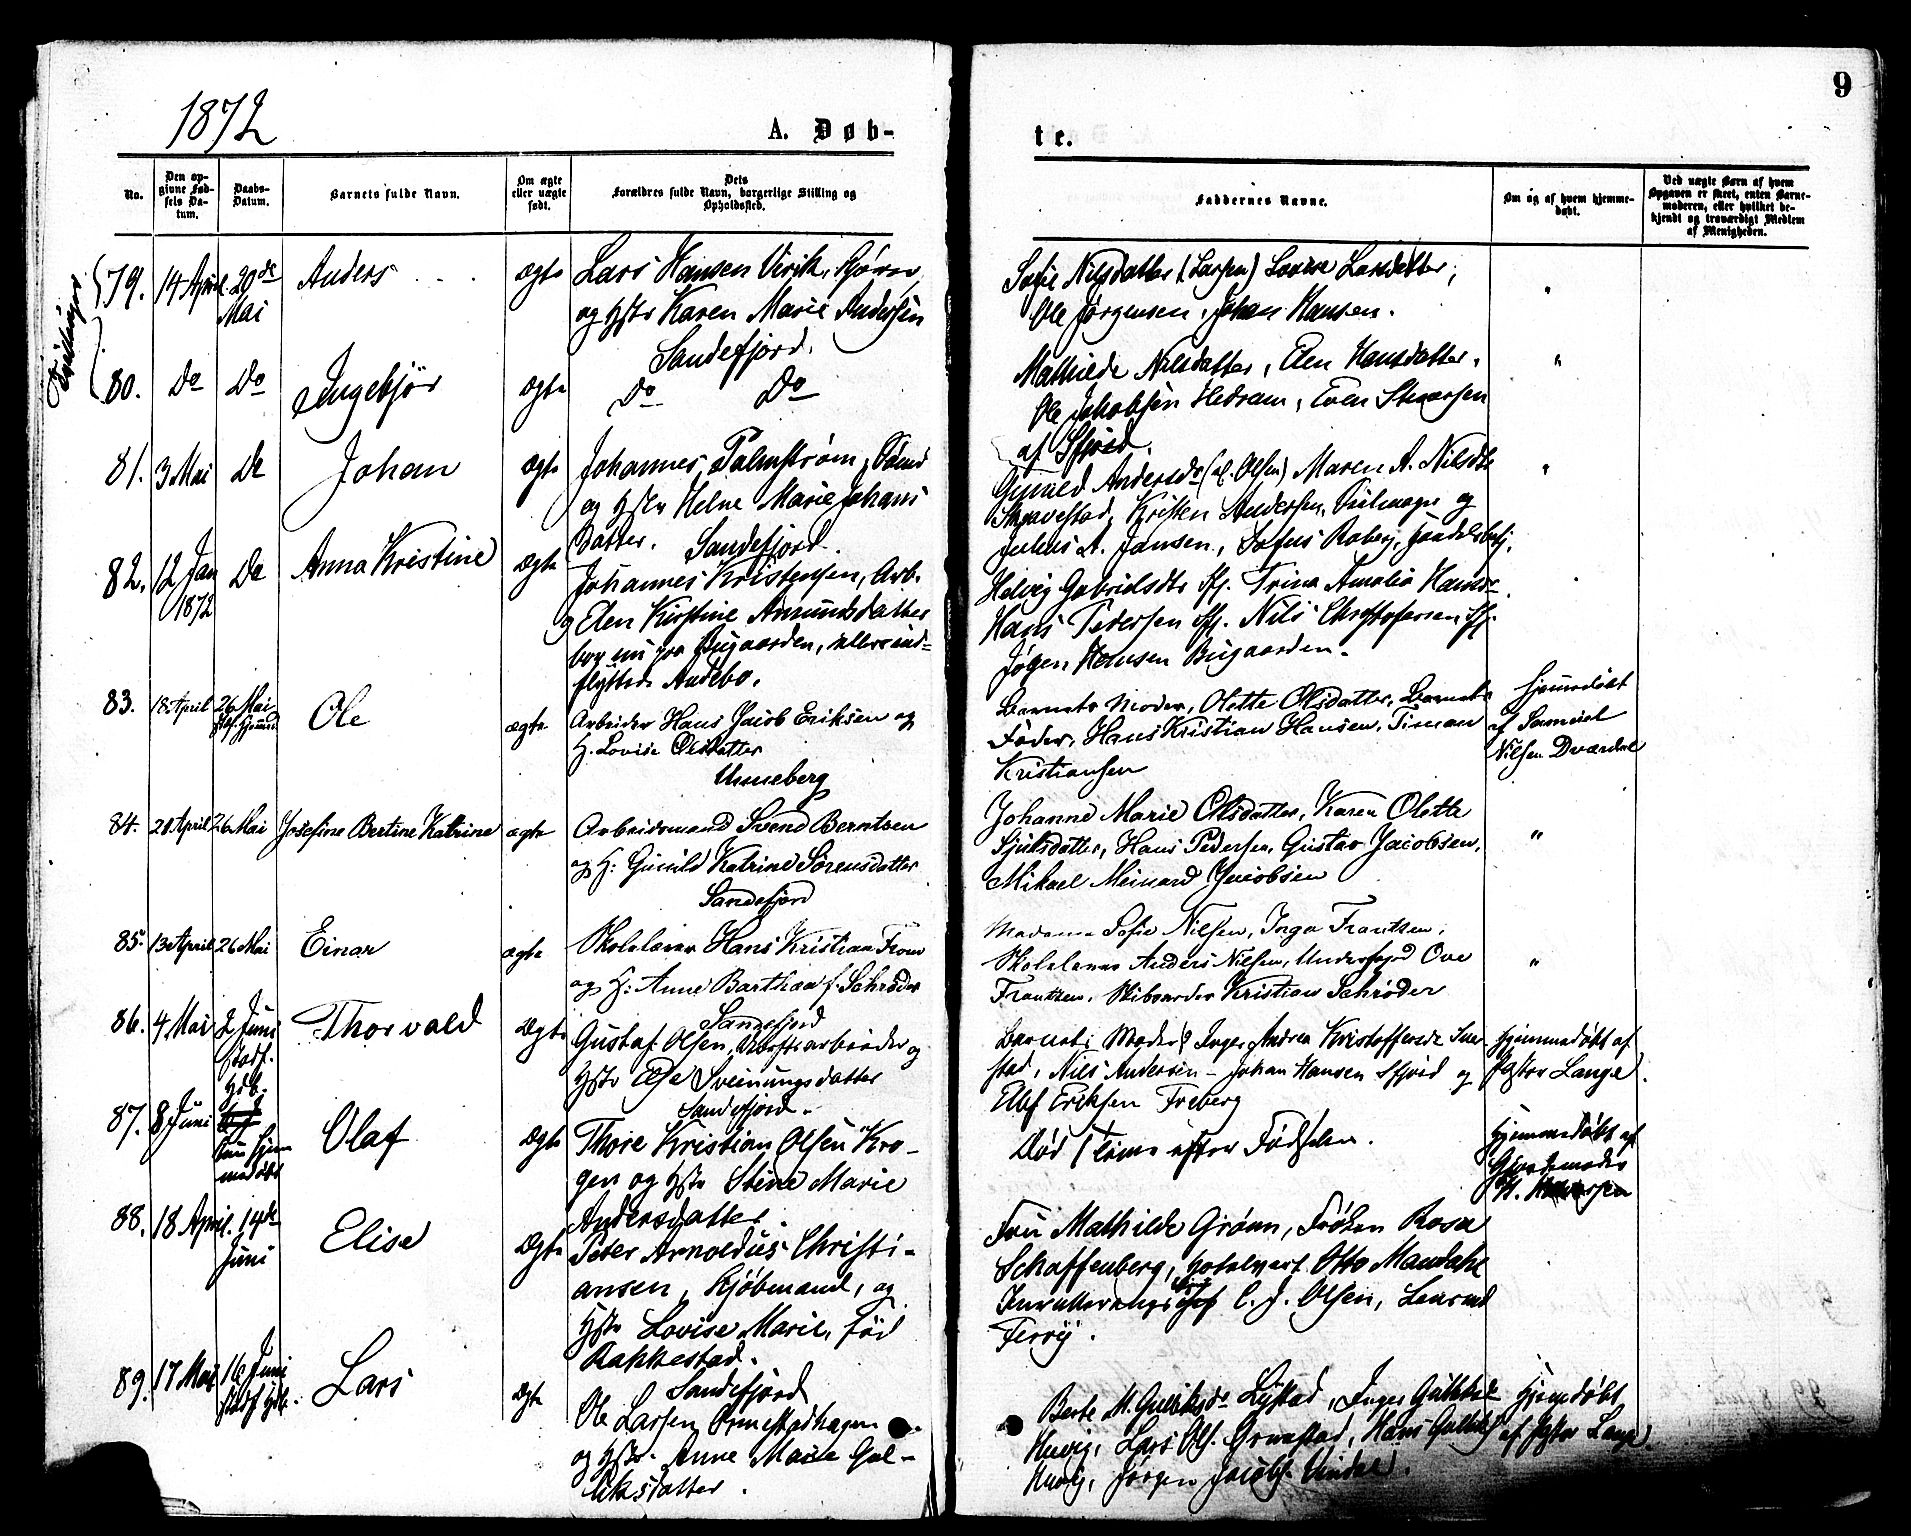 1872
9
A. Døb-
te.
No.
Den op-
givne Fød-
sels Da-
tum.
Daabs-
Datum.
Barnets fulde Navn.
Om ægte
eller uægte
født.
Dets
Forældres fulde Navn, borgerlige Stilling og
Opholdssted.
Faddernes Navne.
Om og af hvem hjemme-
døbt.
Ved uægte Børn af hvem
Opgaven er skeet, enten Barne-
moderen, eller hvilket be-
kjendt og troværdigt Medlem
af Menigheden.
Tvillinger
79. 14 April 20de Mai
Anders
ægte
Lars Hansen Virik,
og Hstr Karen Marie Andersen
Sandefjord.
Sofie Nilsdatter (Larsen) Lovise Larsdatter,
Ole Jørgensen, Johan Hansen.
"
80. Do Do
Ingebjør
ægte
Do Do
Mathilde Nilsdatter, Elen Hansdatter,
Ole Jakobsen Hedram, Even
af Sfjord.
"
81. 3 Mai Do
Johan
ægte
Johannes Palmstrøm,
og Hstr Helne Marie Johans
Datter. Sandefjord.
Gunild Andersdr (Olsen) Maren A. Nilsdtr
Kristen Andersen, og
Julius A. Jansen, Sofus Roberg, Handelsbetj.
"
82. 12 Jan 1872 Do
Anna Kristine
ægte
Johannes Kristensen, Arb.
g Elen Kirstine Amundsdatter
boy nu paa Bugaarden, ind-
flyttede Andebo.
Helvig Gabrielsdtr Sfj. Trina Amalia Hansdr.
Hans Pedersen Sfj. Nils Christofersen Sfj.
Jørgen Hansen Bugaarden.
83. 18 April 26 Mai
Ole
ægte
Arbeider Hans Jacob Eriksen og
H. Lovise Olsdatter
Unneberg
Barnets Moder, Olette Olsdatter, Barnets
Fader, Hans Kristian Hansen, Timan
Kristiansen
Hjemmedøbt
af Samuel
Nilsen Dværdal
84. 20 April 26 Mai
Josefine Bertine Katrine
ægte
Arbeidsmand Svend Berntsen
og H: Gunild Katrine Sørensdatter
Sandefjord
Johanne Marie Olsdatter, Karen Olette
Sjulsdatter, Hans Pedersen, Gustav Jacobsen,
Mikael Meinard Jacobsen
"
85. 13 April 26 Mai
Einar
ægte
Skolelærer Hans Kristian From
og H: Anne Barthea f. Schrøder
Sandefjord
Madame Sofie Nielsen, Inga Frantzen,
Skolelærer Anders Nielsen, Underfoged Ove
Frantzen, Skibsreder Kristian Schrøder
"
86. 4 Mai 2 Juni
stadf.
Hdb.
Thorvald
Ægte
Gustaf Olsen, Værftsarbeider og
Hstr Else Sveinungsdatter
Sandefjord.
Barnets Moder, Inger Andrea Kristoffersdr
stad, Nils Andersen - Johan Hansen Sfjord og
Elef Eriksen Freberg
Hjemmedøbt af
Pastor Lange.
87. 8 Juni
Kun Hjem
medøbt
Olaf
Ægte
Thore Kristian Olsen Kro-
gen og Hstr Stine Marie
Andersdatter.
Død 1 Time efter Fødselen.
Hjemmedøbt af
Gjordemoder
88. 18 April. 14de
Juni
Elise
Ægte
Peter Arnoldus Christi-
ansen, Kjøbmand, og
Hstr Lovise Marie, Fød
Rakkestad.
Sandefjord
Fru Mathilde Grønn, Frøken Rosa
Schaffenberg, Hotelvert Otto Mandahl
C. J. Olsen, Lensmd
Ferry.
89. 17 Mai 16 Juni
stadf Hdb.
Lars
Ægte
Ole Larsen Ormestadhagen
og Hstr. Anne Marie Gul-
liksdatter.
Berte M. Gulliksdr Lystad, Inger Gulliksdr
Huvig, Lars Ols. Ormestad, Hans Gulliks
Huvig, Jørgen Jacobs. Vindal.
Hjemdøbt
af Pastor Lange.